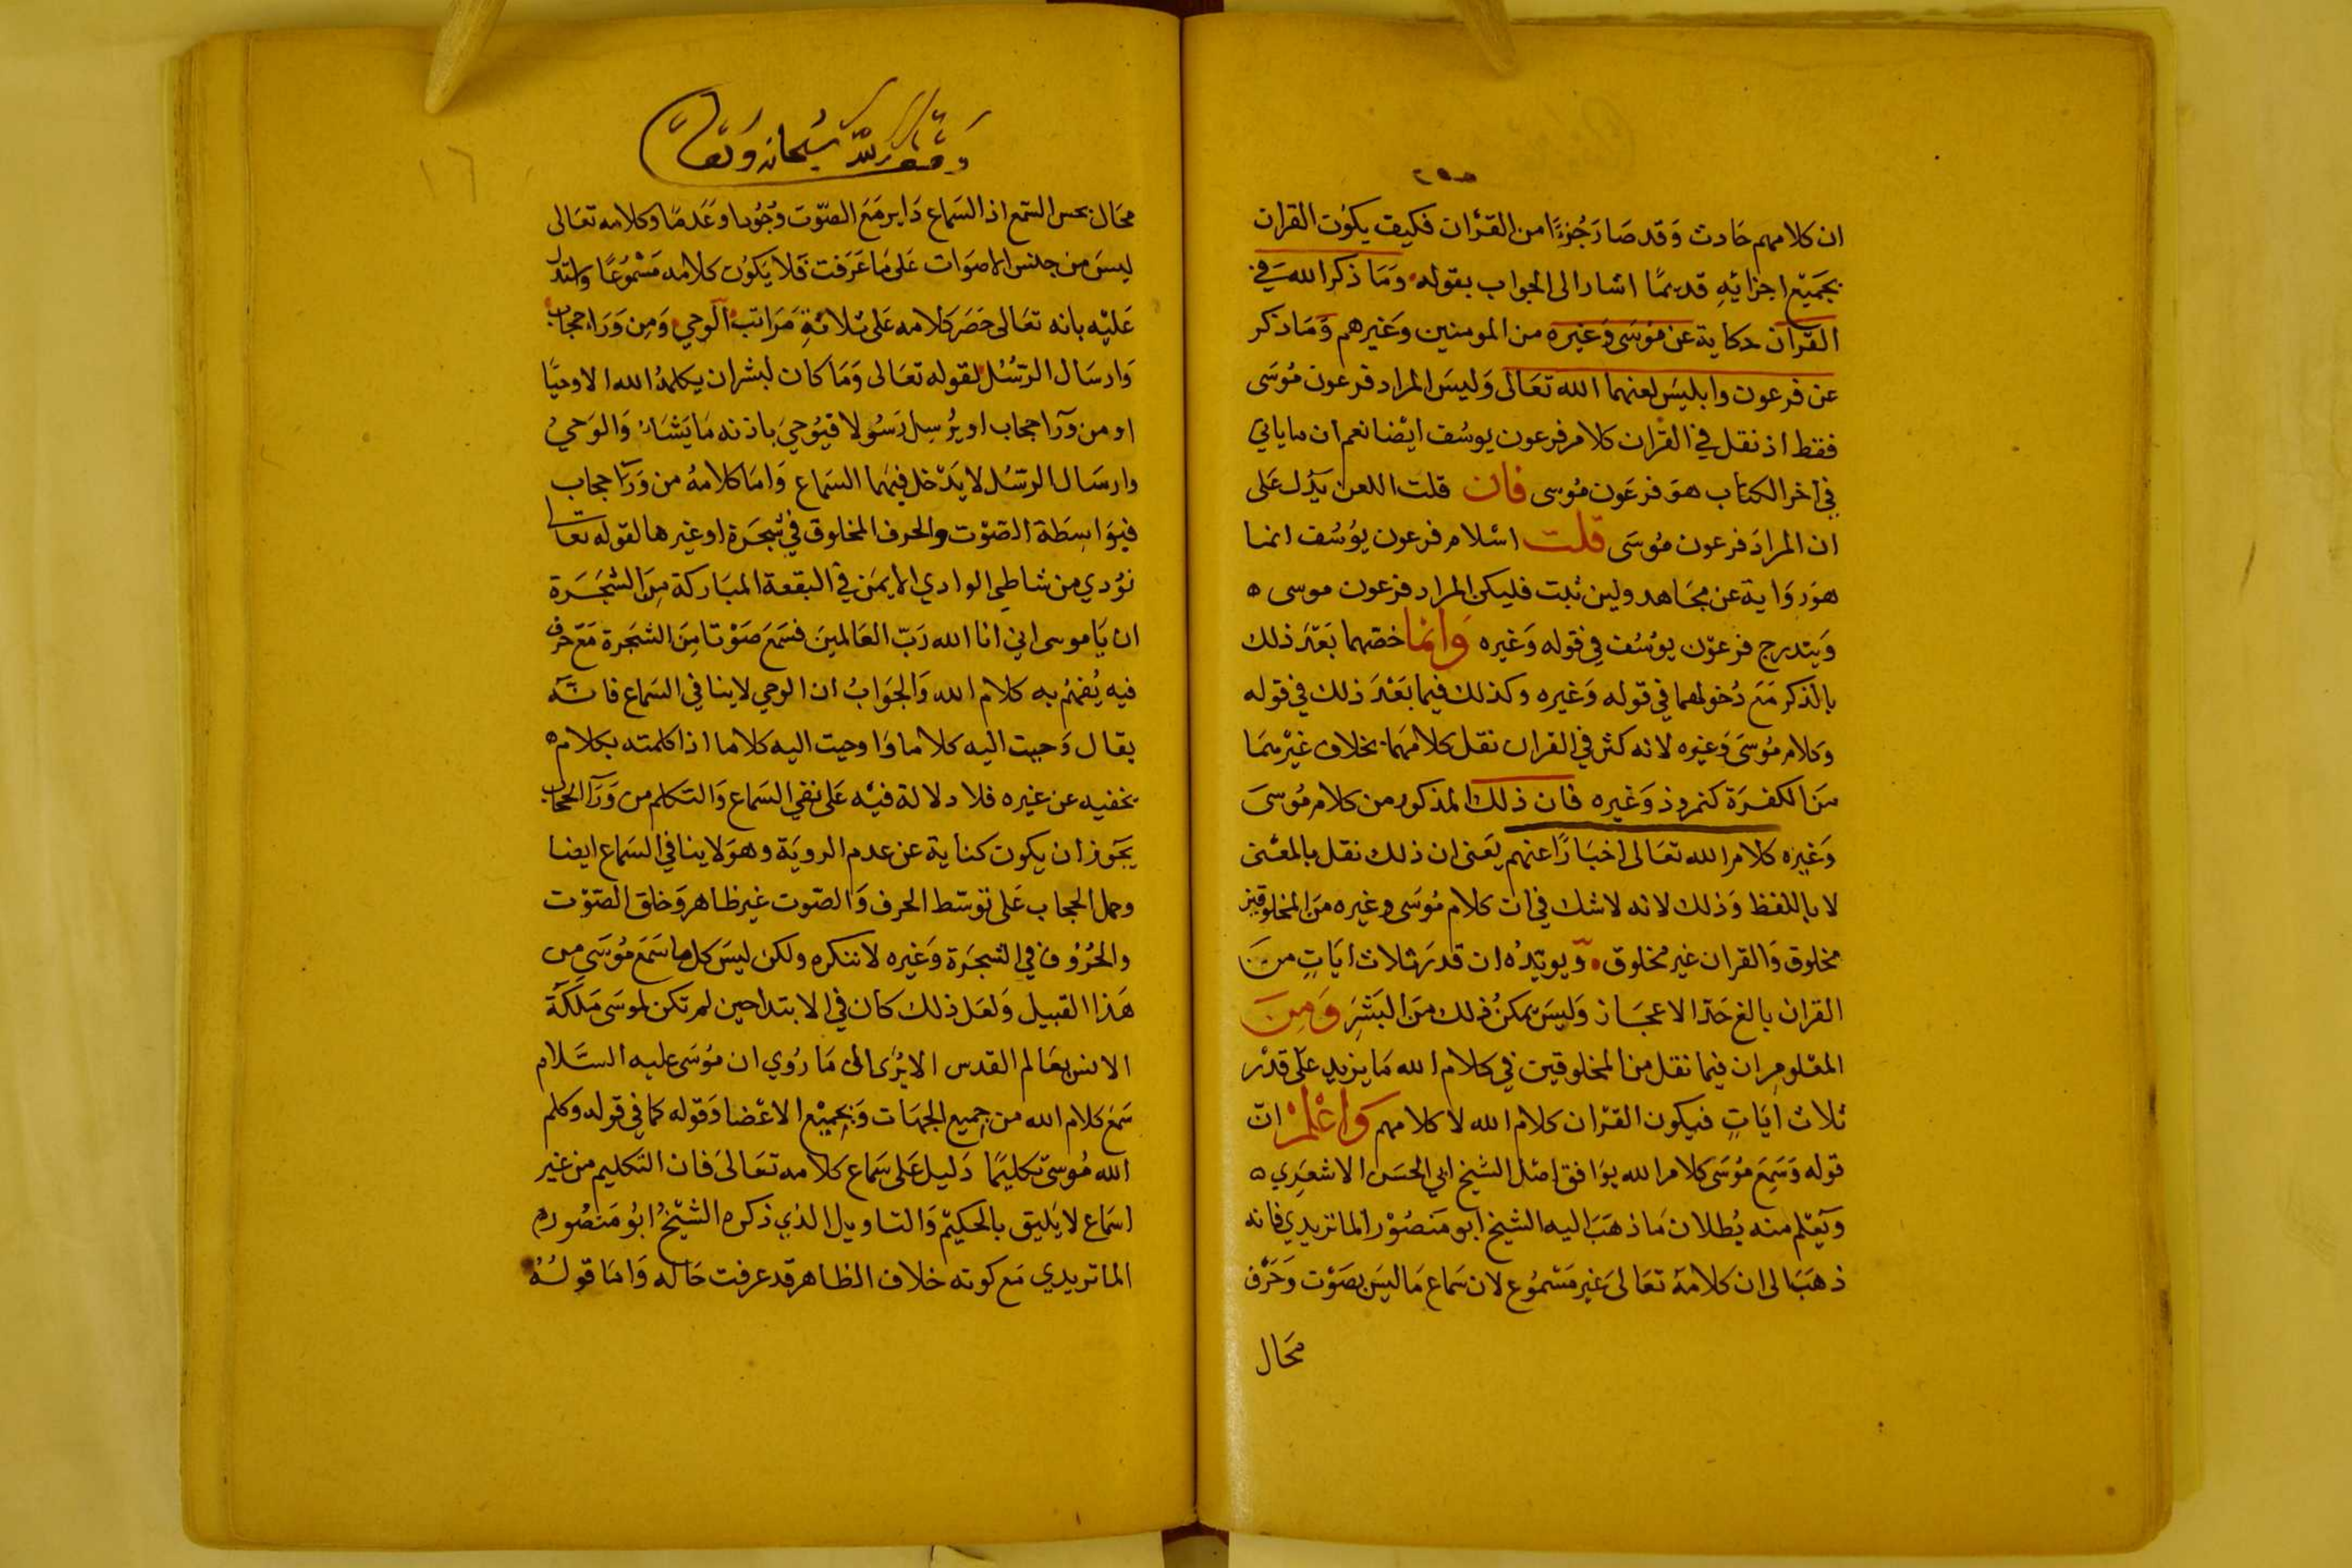 ان كلامهم حادث وَقد صَارَ جُزءًا من القرْان فكيف يكوُن القران
بجَميْع اجزايَهِ قديمًا اشار الى الجواب بقوله وَمَا ذكر الله في
القرآن حكاية عن مُوسَى وَغيره من المومنين وَغيرهم وَمَا ذكر
عن فرعون وابليسَ لعنهما الله تعَالى وَليسَ المراد فرعون مُوسَى
فقط اذ نقل في القرْان كلام فرعون يوسُف ايْضا نعم ان ما ياتي
في اخر الكتاب هوَ فرعَون مُوسى فان قلت اللعن يَدُل عَلى
ان المرادَ فرعون مُوسَى قلت اسْلام فرعون يوُسُف انما
هوَ روَاية عن مجَاهد ولين ثبت فليكن المراد فرعون موسى
وَيندرج فرعوْن يوُسُف في قوله وَغيره وَانما خصّهما بَعْدَ ذلك
بالذكر مَع دُخولهما في قوله وَغيره وكذلك فيما بَعْدَ ذلك في قوله
وكلام مُوسَى وَغيره لانه كثر في القران نقل كلامهَما بخلاف غيْرهمَا
مَن الكفرَة كنمروذ وَغيره فان ذلك المذكور من كلام مُوسىَ
وَغيره كلام الله تعَالى اخبَارًا عنهم يَعنى ان ذلك نقل بالمعْنى
لا باللفظ وَذلك لانه لا شك في ان كلام مُوسَى وغيره منَ المخلوقين
مخلوق وَالقران غير مخلوق وَيويّدُه ان قدرَ ثلاث ايَاتٍ منَ
القران بالغ حَدّ الاعجَاز وَليسَ يمكنُ ذلك منَ البَشرِ وَمِنَ
المعْلومِ ان فيما نقل من المخلوقين في كلام الله مَا يزيد عَلى قدْر
ثلاث ايَاتٍ فيكون القرْان كلام الله لا كلامهم وَاعْلمْ انّ
قوله وَسَمِعَ مُوسَى كلام الله يوَافق اصْل الشيخ ابي الحسَن الاشعَرِي
وَيَعْلم منه بُطلان مَا ذهَبَ اليه الشيخ ابو مَنصُوْر الماتريدي فانه
ذهَبَ الى ان كلامهُ تعَالىَ غير مَسْموُع لان سَماع مَا ليسَ بصَوْت وَحَرْف
محَال
وقف لله سُبحانه وتعَا
محَال بحس السّمع اذ السَماع دَاير مَعَ الصّوْت وُجُوبا وعَدمًا وكلامه تعَالى
ليسَ من جلنس الاصوَات عَلى مَا عَرَفت فَلا يَكوُن كلامه مَسْموُعًا واستدل
عَليْه بانه تعَالى حَصَر كلامه عَلى ثلاثةِ مَرَاتب الوحي وَمِن وَرَاء حجاب
وَارسَال الرّسُل لقوله تعَالى وَمَا كان لبشر ان يكلمهُ الله الا وحيًا
او من وَرآ حجَاب او يرُسِل رَسُولا فيُوحيَ باذنه مَا يَشَاء وَالوَحيُ
وارسَال الرّسُل لا يَدْخل فيهما السَماع وَامَا كلامهُ من وَرَآ حجاب
فبوَاسِطة الصَوْت والحرف المخلوق في شَجَرَة او غيرها لقوله تعا
نوُدي من شاطي الوادي الايمَن في البقعة المبَاركة مِنَ الشجَرَة
ان يَا موسى اني انا الله رَبّ العَالمينَ فسَمعَ صَوْتا مِنَ الشجَرة مَعَ حرف
فيه يُفهَمُ به كلام الله وَالجَوَابُ ان الوحي لا ينافي السَماع فانَّه
يقال وَحيت اليه كلاما وَاوحيت اليه كلاما اذا كلمته بكلام
تخفيه عن غيره فلا دلالة فيْه عَلى نفي السَماع وَالتكلم من وَرَآ الحجَاب
يَجَوز ان يكون كناية عن عدم الرويَة وهوَ لا ينافي السَماع ايضا
وحمل الحجاب عَلى توسّط الحرف وَالصّوت غير ظاهر وَخلق الصَوْت
والحُرُوف في الشجَرَة وَغيره لا ننكره ولكن ليسَ كل ما سَمَع مُوسَى من
هَذا القبيل وَلعَل ذلك كان في الابتدا حين لم تكن لموسَى مَلَكَة
الانس بعَالم القدس الا يرُى الى مَا رُوي ان مُوسَى عليه السَّلام
سَمعَ كلام الله من جميع الجهَات وَبجميْع الاعْضا وَقوله كما في قوله وكلم
الله مُوسَى تكليمًا دَليل عَلى سَماع كلامه تعَالىَ فان التكليم من غير
اسَماع لا يَليق بالحَكيْم وَالتاويل الذي ذكره الشيْخ ابوُ مَنصُور
الماتريدي مَع كونه خلاف الظاهر قد عرفت حَاله وَامَا قولهُ